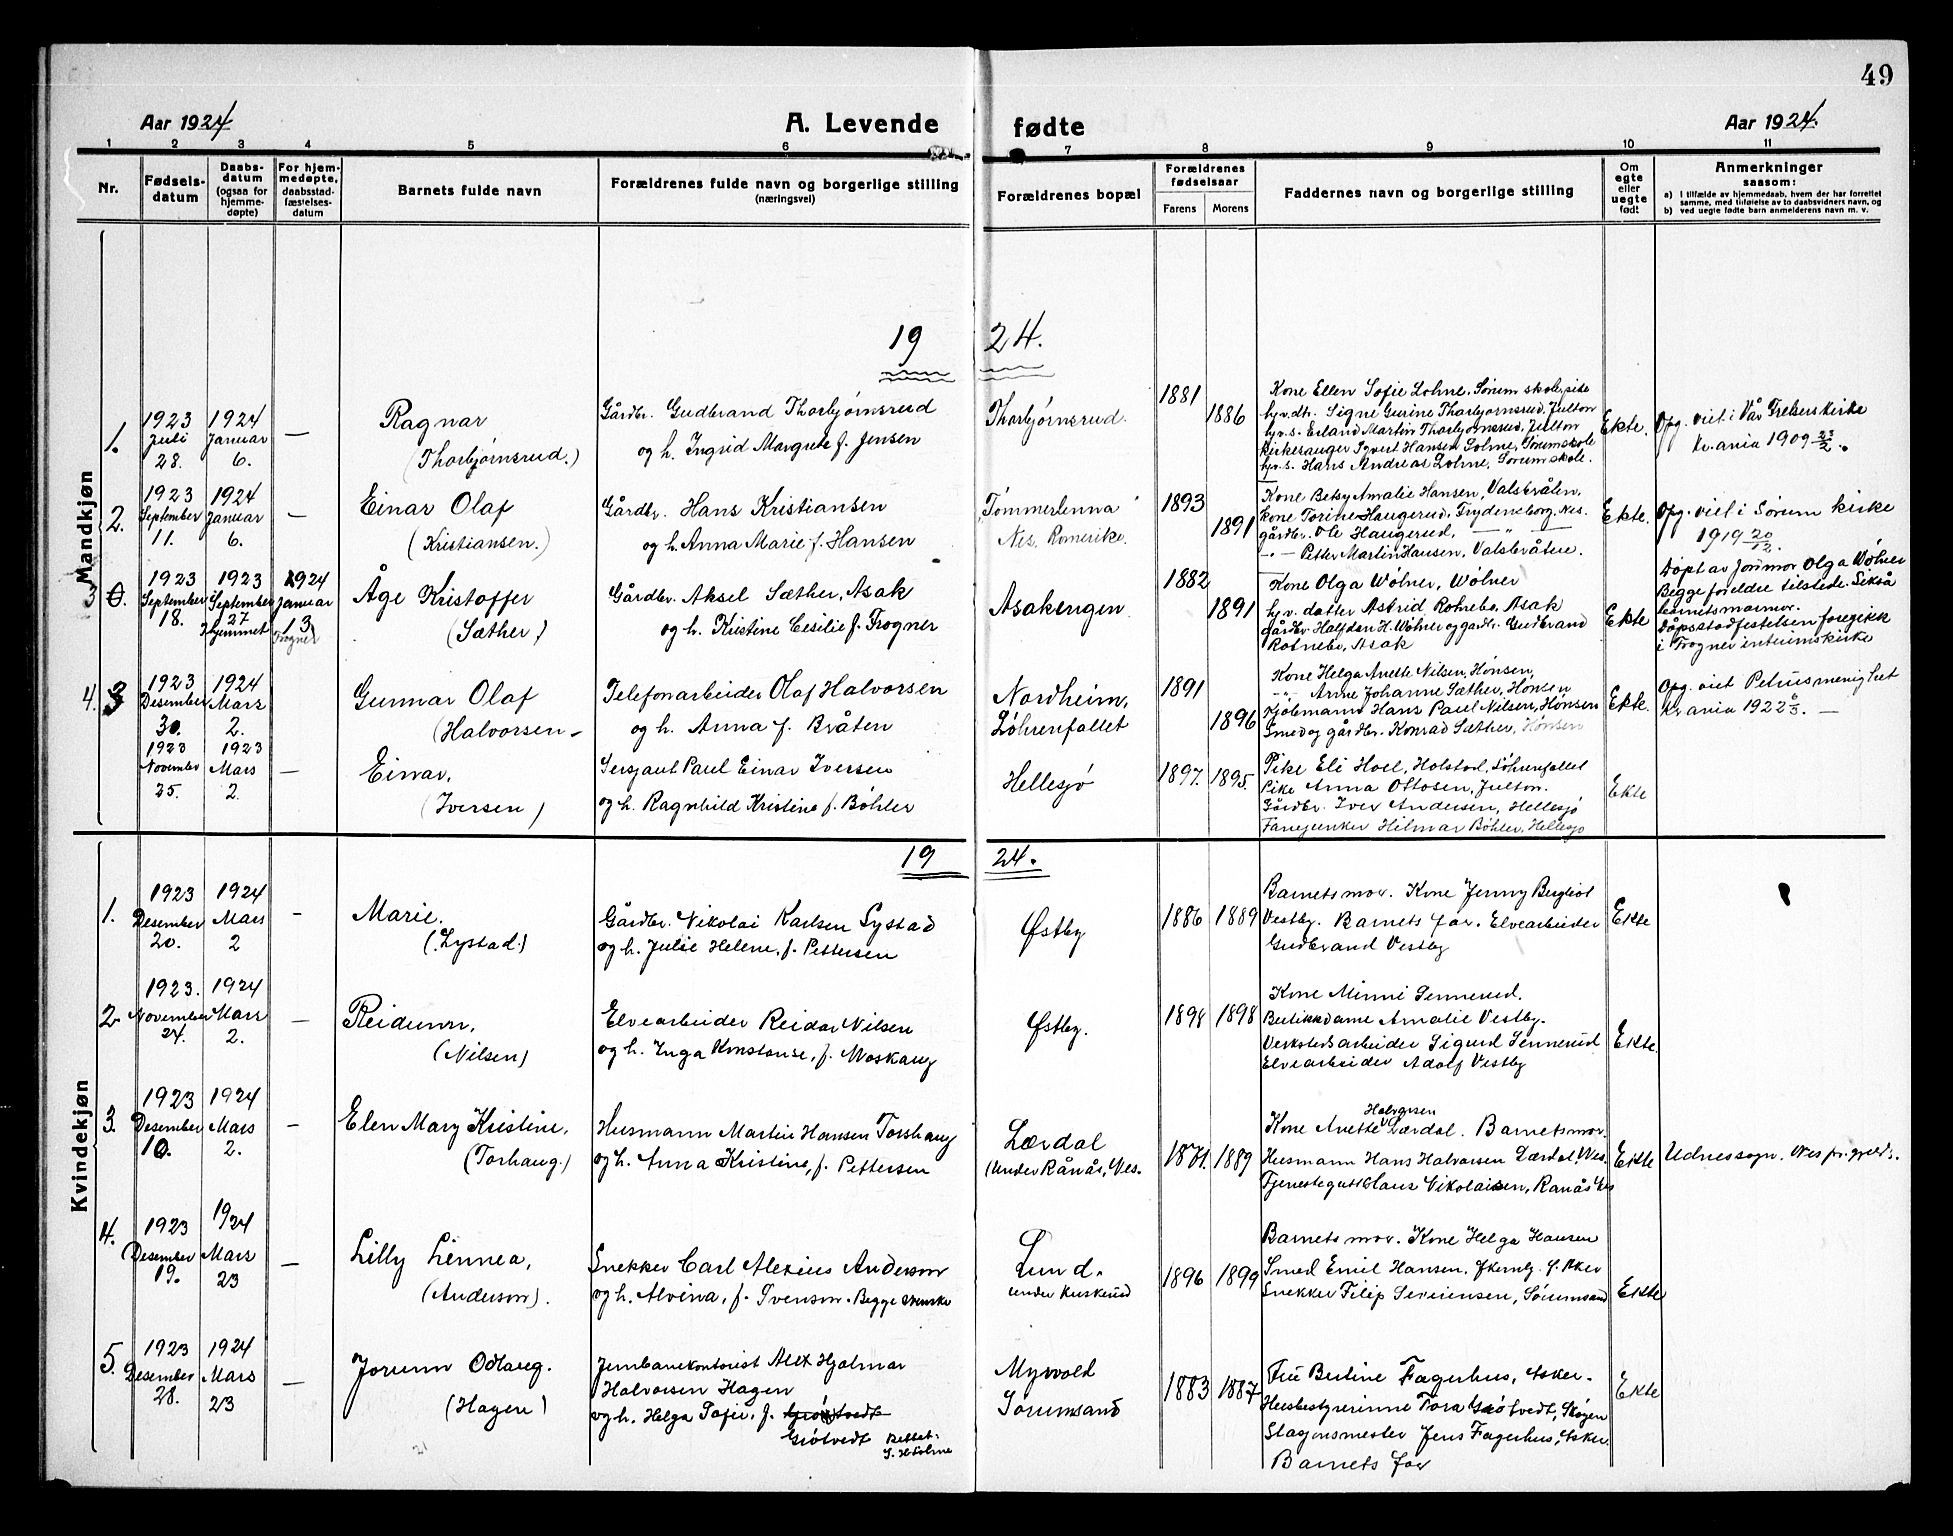 49
Aar 1924
A. Levende
fødte
Aar 1924.
1 2 3 4 5 6 7 8 9 10 11
Nr.
Fødsels-
datum
Daabs-
datum
(ogsaa for
hjemme-
døpte)
For hjem-
medøpte,
daabsstad-
fæstelses-
datum
Barnets fulde navn
Forældrenes fulde navn og borgerlige stilling
(næringsvei)
Forældrenes bopæl
Forældrenes
fødselsaar
Farens Morens
Faddernes navn og borgerlige stilling
Om
egte
eller
uegte
født
Anmerkninger
saasom:
a) I tilfælde av hjemmedaab, hvem der har forrettet
samme, med tilføielse av to daabsvidners navn, og
b) ved uegte fødte barn anmelderens navn m. v.
Mandkjøn
19 24.
1.
1923
Juli
28.
1924
Januar
6.
—
Ragnar
(Thorbjørnsrud.)
Gårdbr. Gudbrand Thorbjørnsrud
og h. Ingrid Margrete f. Jensen
Thorbjørnsrud.
1881
1886
Kone Ellen Sofie Lohne, Sørum skole, site
hj.v.dtr. Signe Gurine Thorbjørnsrud, Julton
hj.v.s. Erland Martin Thorbjørnsrud, Julton
Kirkesanger Syvert Hansen Lohne, Sørumskole
hj.v.s. Hans Andreas Lohne, Sørumskole.
Ekte.
Opg. viet i Vår Frelserskirke
Kr.ania 1909 23/2.
2.
1923
September
11.
1924
Januar
6.
—
Einar Olaf
(Kristiansen.)
Gårdbr. Hans Kristiansen
og h. Anna Marie f. Hansen
Tømmerlenna
Nes, Romerike.
1893
1891
Kone Betsy Amalie Hansen, Valsbråten,
Kone Torine Haugerud, Frydensborg, Nes.
gårdbr. Ole Haugerud, — " —
— " — Petter Martin Hansen, Valsbråten.
Ekte.
Opg. viet i Sørum kirke
1919 20/12.
3 0.
1923
September
18.
1923
September
27
Hjemmet
1924
Januar
13
Frogner
Åge Kristoffer
(Sæther)
Gårdbr. Aksel Sæther, Asak
og h. Kristine Cesilie f. Frogner
Asakengen
1882
1891
Kone Olga Wølner, Wølner
hj.v. datter Astrid Rotnebo, Asak
gårdbr. Halfdan H. Wølner og gårdbr. Gudbrand
Rotnebo, Asak
Ekte
Døpt av jormor Olga Wølner
Begge foreldre tilstede. Likså
barnets mormor.
Dåpsstadfestelsen foregikk
i Frogner interimskirke
4. 3
1923
Desember
30.
1924
Mars
2.
Gunnar Olaf
(Halvorsen –
Telefonarbeider Olaf Halvorsen
og h. Anna f. Bråten
Nordheim,
Løhrenfallet
1891
1896
Kone Helga Anette Nilsen, Hønsen,
— " — Anne Johanne Sæther, Hønsen
Kjøbmann Hans Paul Nilsen, Hønsen
Smed og gårdbr. Konrad Sæther, Hønsen
Ekte.
Opg. viet Petrusmenighet
Kr.ania 1922 5/3. —
1923
November
25.
1923
Mars
2.
—
Einar,
(Iversen)
Sersjant Paul Einar Iversen
og h. Ragnhild Kristine f. Bøhler
Hellesjø
1897. 1895.
Pike Eli Hoel, Holstad, Løhrenfallet
Pike Anna Ottosen, Julton.
Gårdbr. Iver Andersen, Hellesjø
Fanejunker Hilmar Bøhler, Hellesjø
Ekte
Kvindekjøn
19 24.
1.
1923
Desember
20.
1924
Mars
2
–
Marie.
(Lystad.)
Gårdbr. Nikolai Karlsen Lystad
og h. Julie Helene, f. Pettersen
Østby
1886 1889
Barnets mor. Kone Jenny Bergliot
Vestby. Barnets far. Elvearbeider
Gudbrand Vestby
Ekte
2.
1923.
November
24.
1924
Mars
2.
—
Reidunn,
(Nilsen)
Elvearbeider Reidar Nilsen
og h. Inga Konstanse, f. Moskaug
Østby.
1898 1898
Kone Minni Sennerud.
Butikkdame Amalie Vestby.
Verkstedsarbeider Sigurd Sennerud
Elvearbeider Adolf Vestby
Ekte.
3.
1923
Desember
10.
1924
Mars
2.
–
Elen Mary Kristine,
(Torhaug.)
Husmann Martin Hansen Torshaug
og h. Anna Kristine, f. Pettersen
Lærdal
(under Rånås, Nes.
1871. 1889
Kone Anette Halvorsen Lærdal. Barnets mor.
Husmann Hans Halvorsen Lærdal, Nes.
Tjenestegutt Claus Nikolaisen, Rånås Nes
Ekte
Udnessogn. Nes pr.gjeld.
4.
1923
Desember
19.
1924
Mars
23
—
Lilly Linnea,
(Anderson).
Snekker Carl Alexius Anderson
og h. Alvina, f. Svenson. Begge svenske
Lund.
under Kuskerud
1896 1899
Barnets mor. Kone Helga Hansen
Smed Emil Hansen,
Snekker Filip Severinsen, Sørumsand
Ekte
5.
1923
Desember
28.
1924
Mars
23
—
Jorunn Odlaug.
(Hagen)
Jernbanekontorist Alex Hjalmar
Halvorsen Hagen
og h. Helga Sofie, f. Grøtvedt
Grøtvedt Rettet:
S. H. Lohne
Myrvold
Sørumsand
1883 1887
Fru Bertine Fagerhus, Asker.
Husbestyrerinne Tora Grøtvedt, Skøyen
Stasjonsmester Jens Fagerhus, Asker.
Barnets far
Ekte